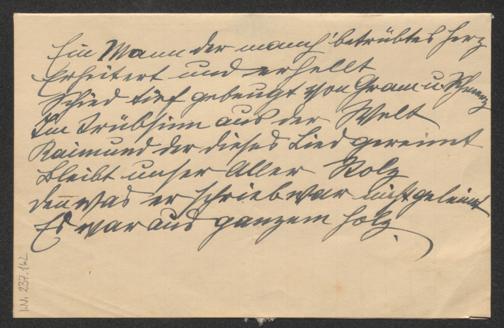 Ein Mann der manch' betrübtes Herz
Erheitert und erhellt
Schied tief gebeugt von Gram u. Schmerz
Im Trübsinn aus der Welt
Raimund der dieses Lied gereimt
Bleibt unser Aller Stolz
denn was er schrieb war nicht geleimt
Es war aus ganzem Holz.
I.N. 237.162